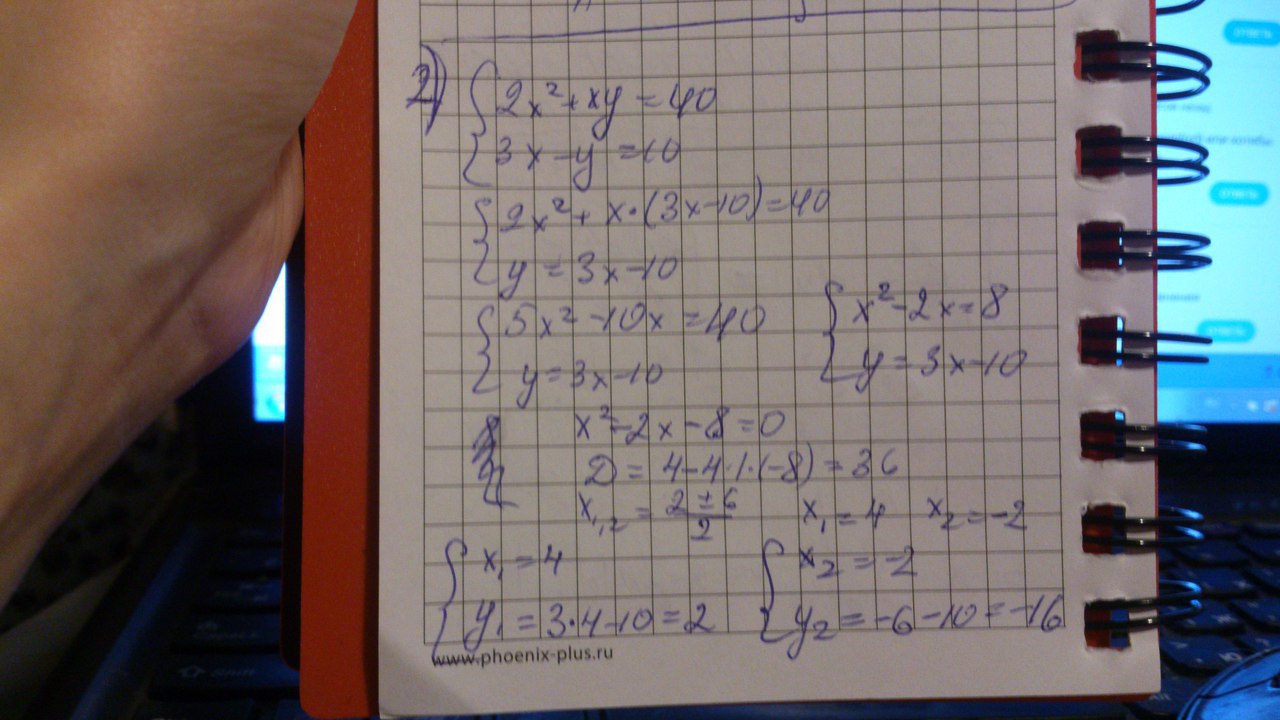 2)
2x² + xy = 40
3x - y = 10
2x² + x·(3x-10) = 40
y = 3x-10
5x² - 10x = 40
y = 3x-10
x² - 2x = 8
y = 3x-10
x² - 2x - 8 = 0
D = 4-4·1·(-8) = 36
x₁,₂ = (2±6)/2 x₁ = 4 x₂ = -2
x₁ = 4
y₁ = 3·4-10 = 2
x₂ = -2
y₂ = -6-10 = -16
www.phoenix-plus.ru
ответь
ответь
ответь